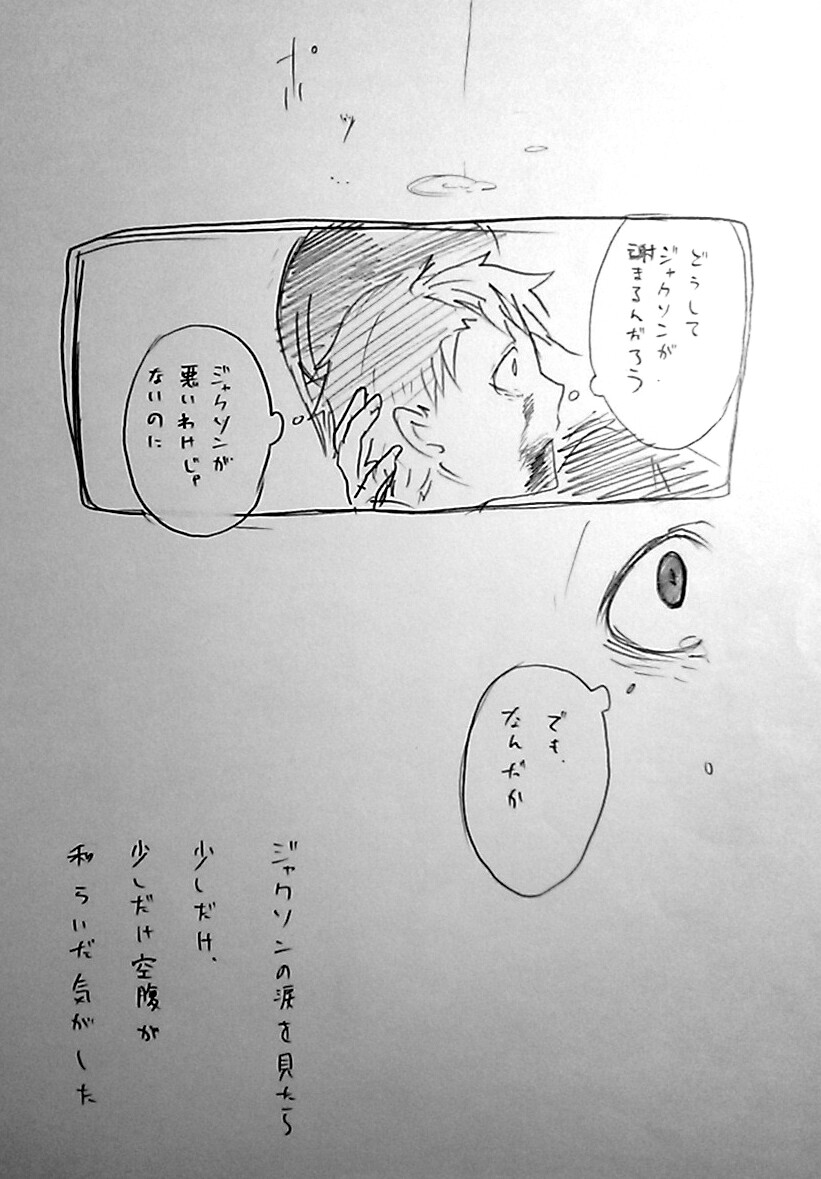 ポッ…
どうして
ジャクソンが
謝まるんだろう
ジャクソンが
悪いわけじゃ
ないのに
でも、
なんだか
ジャクソンの涙を見たら
少しだけ、
少しだけ空腹が
和らいだ気がした